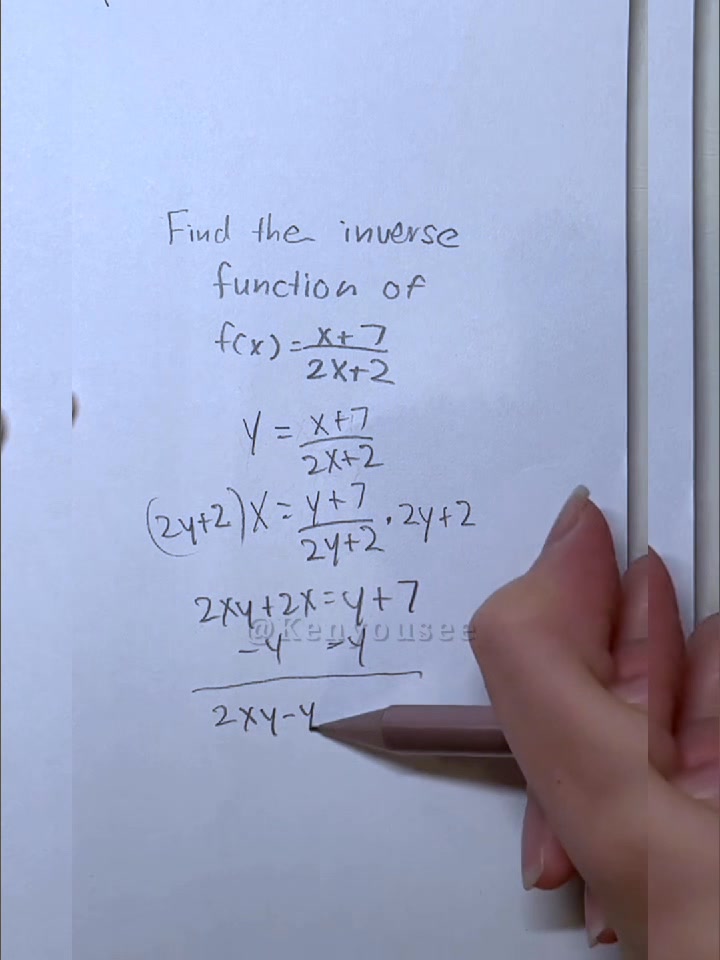 Find the inverse
function of
f(x) = x+7 / 2x+2
y = x+7 / 2x+2
(2y+2)x = y+7 / 2y+2 · 2y+2
2xy+2x=y+7
@Kenyousee
-y =y
2xy-y